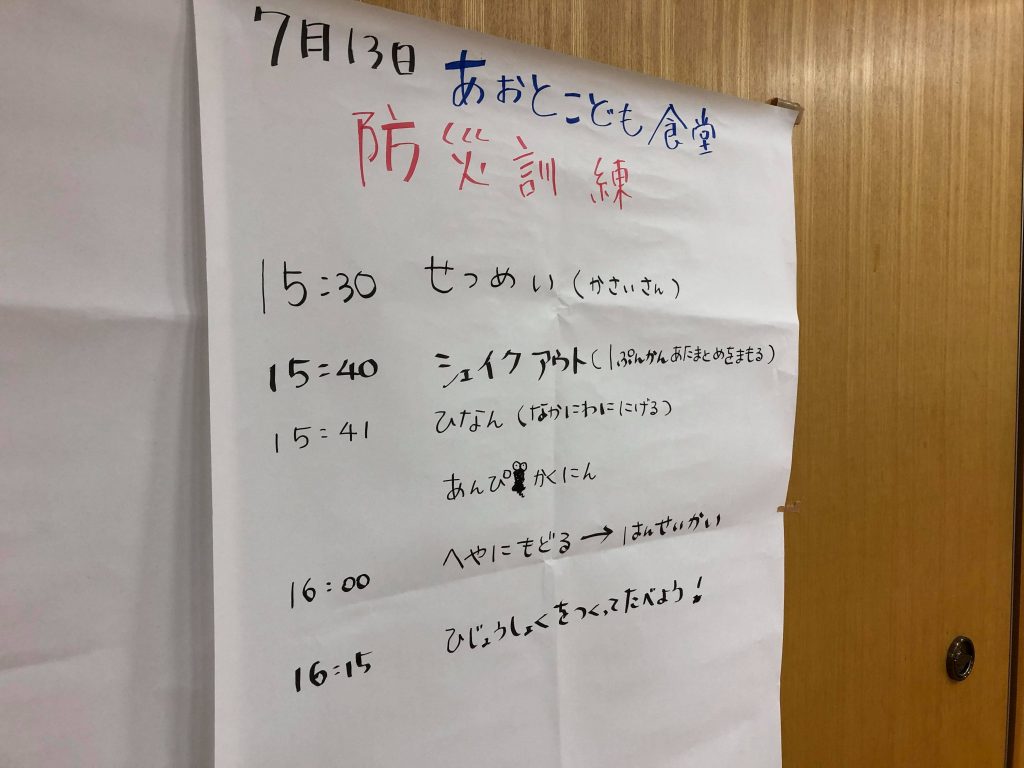 7月13日 あおとこども食堂
防災訓練
15:30 せつめい(かさいさん)
15:40 シェイクアウト(1ぷんかんあたまとめをまもる)
15:41 ひなん(なかにわににげる)
あんぴかくにん
16:00 へやにもどる→はんせいかい
16:15 ひじょうしょくをつくってたべよう!